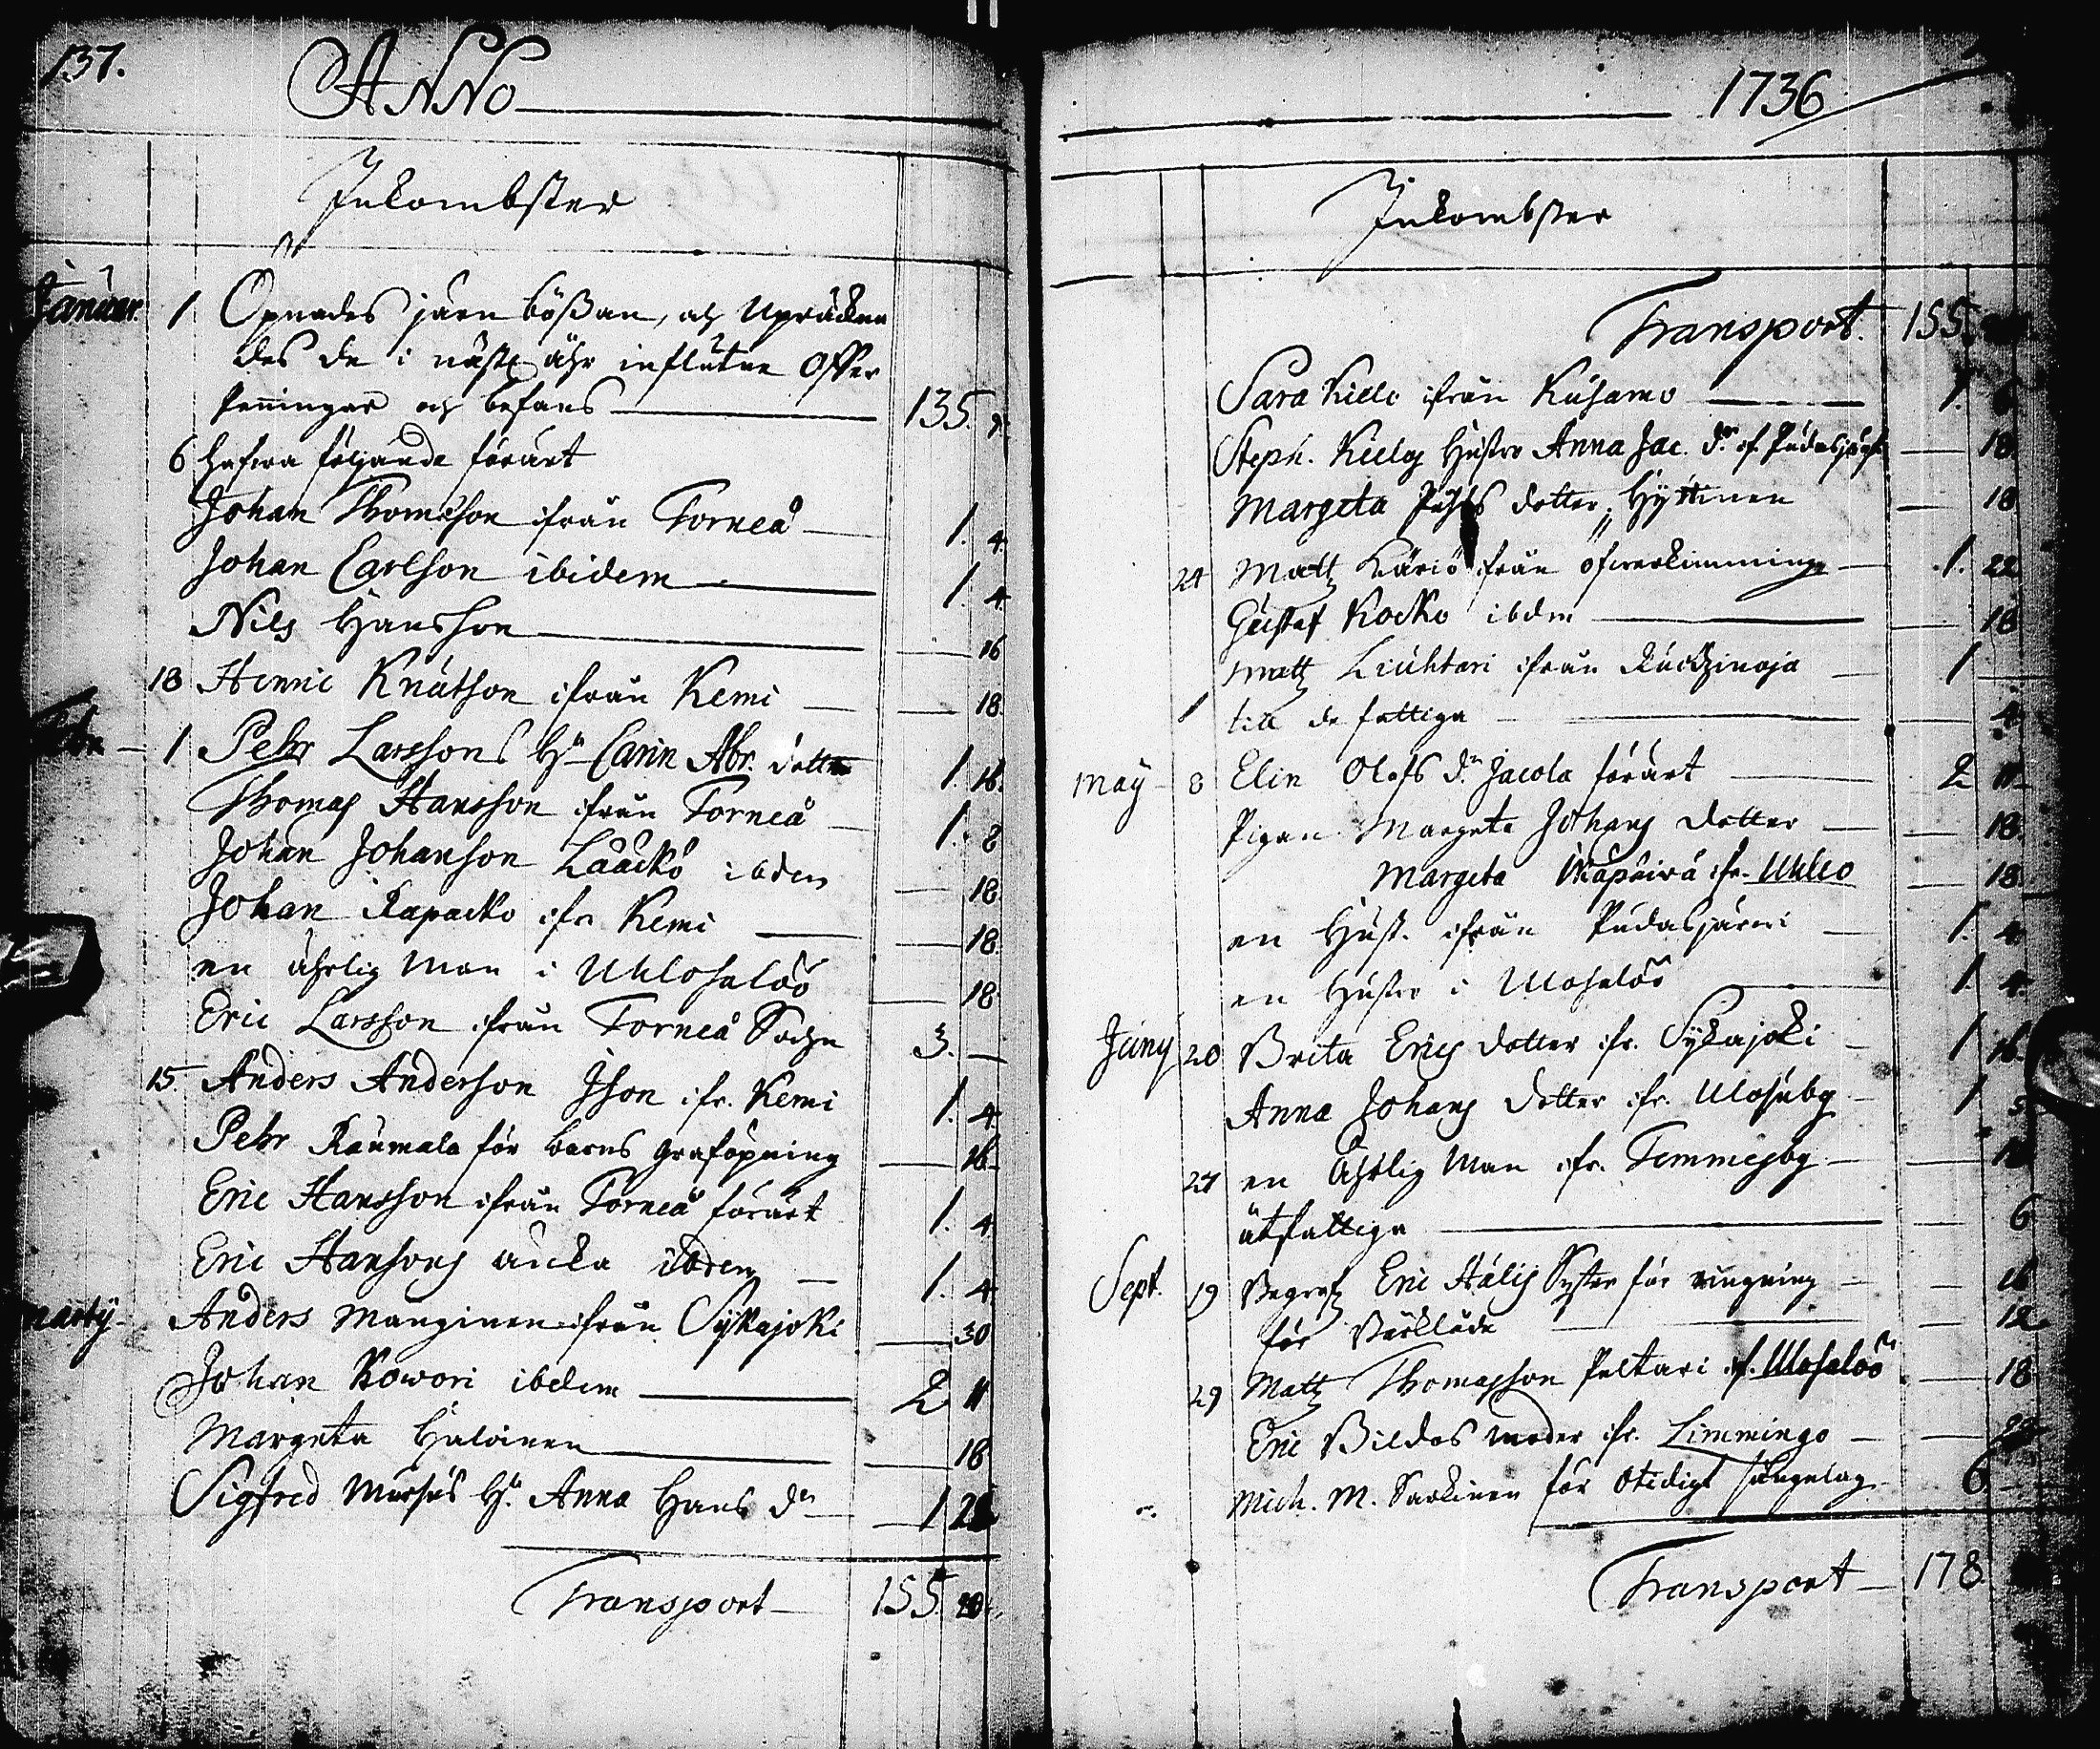 137.
ANNO
Inkombster
Januar. 1 Öpnades järn bößan, och Upräckna
des de i nästl. åhr influtne Offer
penningar och befans 135.
6 hafwa följande förärt
Johan Thomsson ifrån Torneå 1. 4.
Johan Carlson ibidem 1. 4.
Nils Hansson 16
18 Henric Knutson ifrån Kemi 18.
Febr. 1 Pehr Larssons H. Carin Abr. dotter 1. 16.
Thomas Hansson ifrån Torneå 1. 8
Johan Johanson Lååckå ibdem 18
Johan Rapacko ifr. Kemi 18.
en ährlig Man i Uhlosalöö 18
Eric Larsson ifrån Torneå Sochn 3.
15. Anders Anderson Json ifr. Kemi 1. 4
Pehr Raumala för barns graföpning 16
Eric Hansson ifrån Torneå förärt 1. 4
Eric Hansons äncka ibdem 1. 4.
Martij Anders Manginen ifrån Sykajoki 30
Johan Kowori ibidem 2 11
Margeta Haloinen 18
Sigfred Mursus H. Anna Hans dr 1
Transport 155. 20
1736
Inkombster
Transport. 155.
Sara Kiele ifrån Kusamo 1. 6
Steph. Kielos Hustro Anna Jac. dr. 18.
Margeta dotter Hyttinen 18
24 Matz ifrån öfwerkimminge 1. 22
Gustaf Kocko ibdm 18
Matz Liuhtari ifrån 1
1 till de fattiga 4
May 8 Elin Olofs dr. Jacola förärt 2 11
Pigan Margeta Johans dotter 18.
Margeta ifr. Uhleo 18.
en Hust. ifrån Pudasjärwi 1. 4
en Hustro i Ulosalöö 1. 4.
Juny 20 Brita Erics dotter ifr. Sykajoki 1 16
Anna Johans dotter ifr. Ulosuby 1 5
24 en Ährlig Man ifr. Temmesby 18
åt fattiga 6
Sept. 19 Begrofz Eric Hälis Syster för ringning 16
för Bårkläde 12
29 Matz Thomasson Peltari if. Ulosalöö 18
Eric Bildos moder ifr. Limmingo
Mich. M. Sarkinen för otidigt sängelag 6
Transport 178